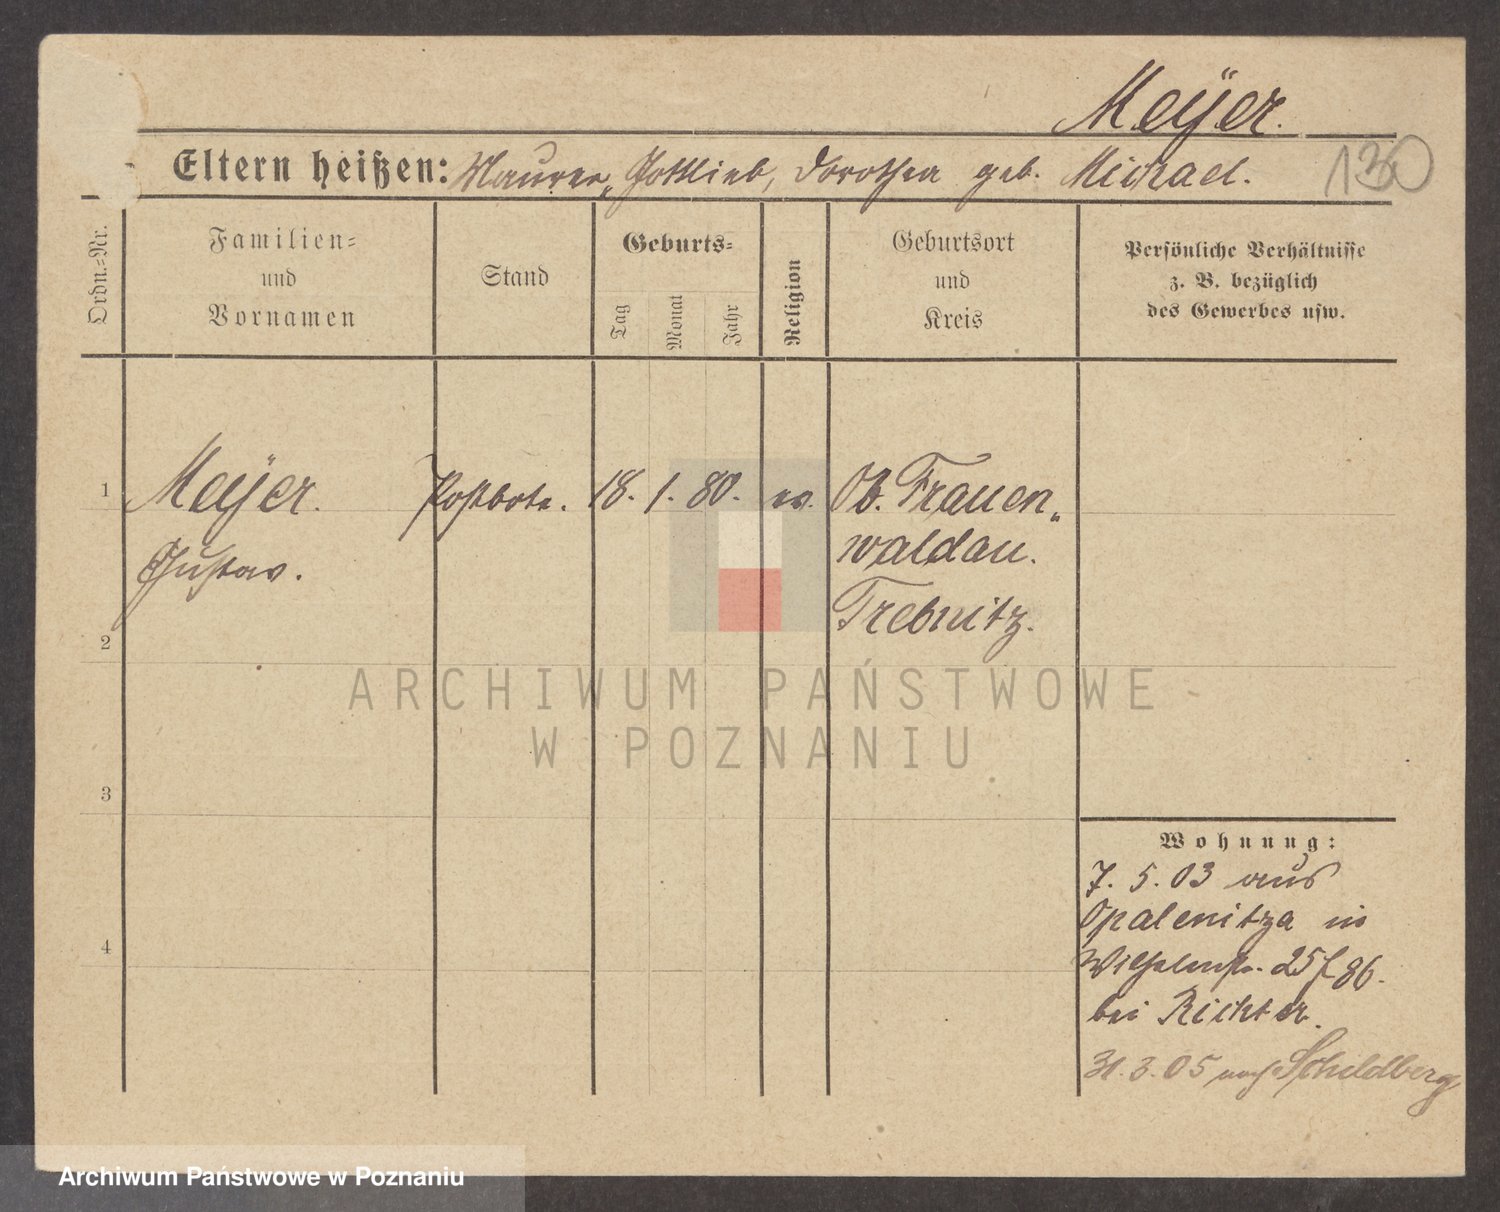 Meÿer.
130
Eltern heißen: Maurer, Gottlieb, Dorothea geb. Michael.
Ordn.=Nr.
Familien=
und
Vornamen
Stand
Geburts=
Tag
Monat
Jahr
Religion
Geburtsort
und
Kreis
Persönliche Verhältnisse
z. B. bezüglich
des Gewerbes usw.
1 Meÿer. Postbote. 18. 1. 80. ev. Ob. Frauen„
Gustav. waldau.
2 Trebnitz.
ARCHIWUM PAŃSTWOWE
W POZNANIU
3
4
Wohnung:
7. 5. 03 aus
Opalenitza in
Wilhelmstr. 25 f 86.
bei Richter.
31. 3. 05 nach Schildberg
Archiwum Państwowe w Poznaniu